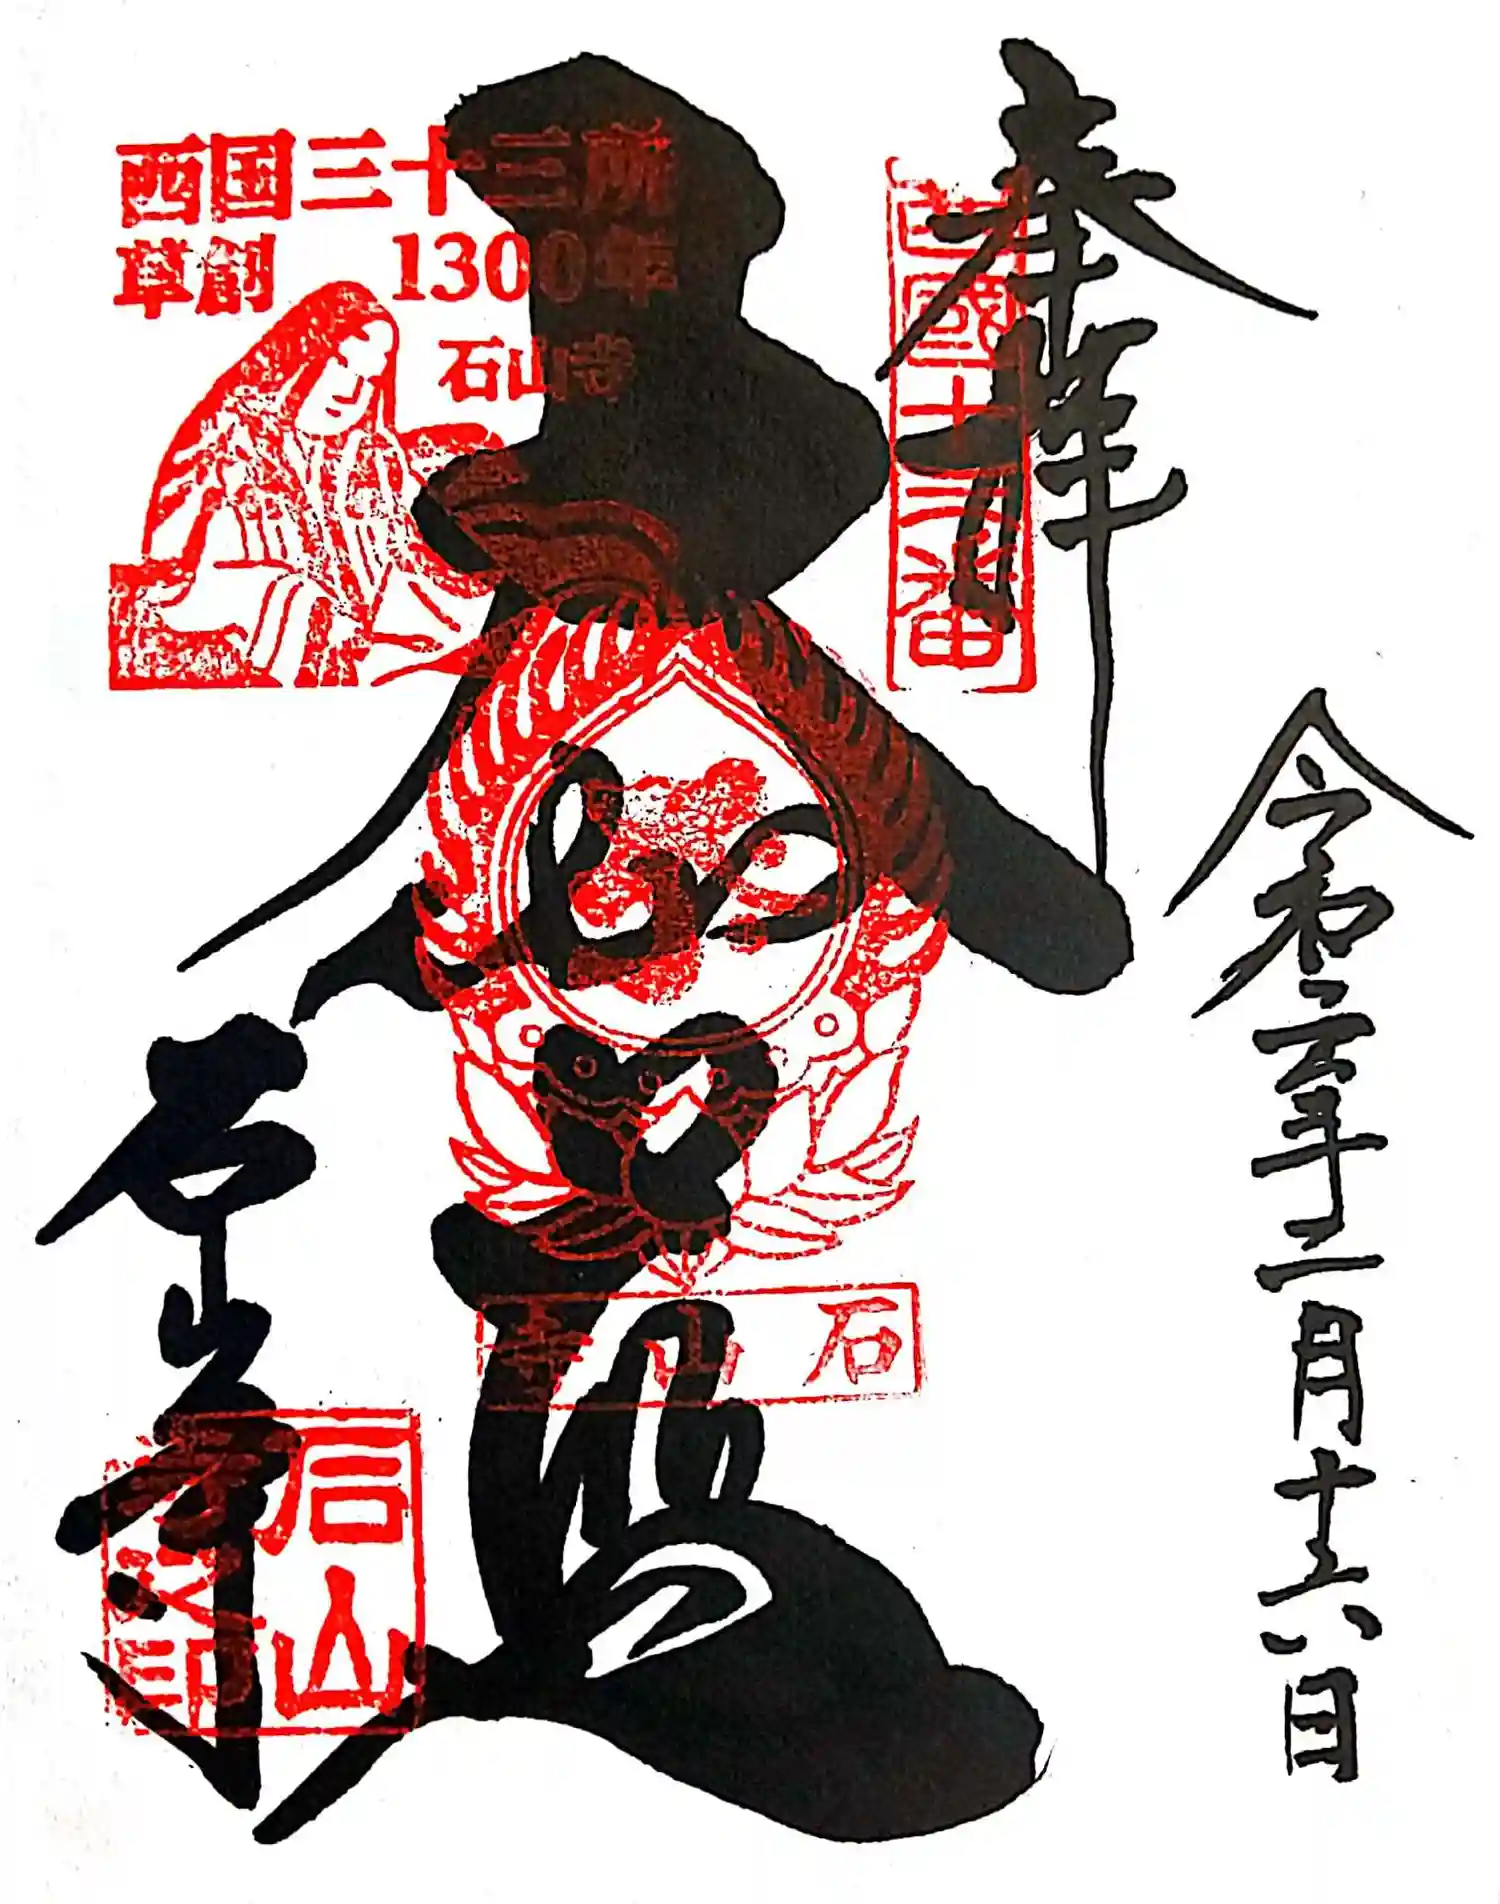 奉拝
西國十三番
令和年二月十六日
大伽藍
西国三十三所
草創 1300年
石山寺
石山寺
石山寺
石山
寺之印